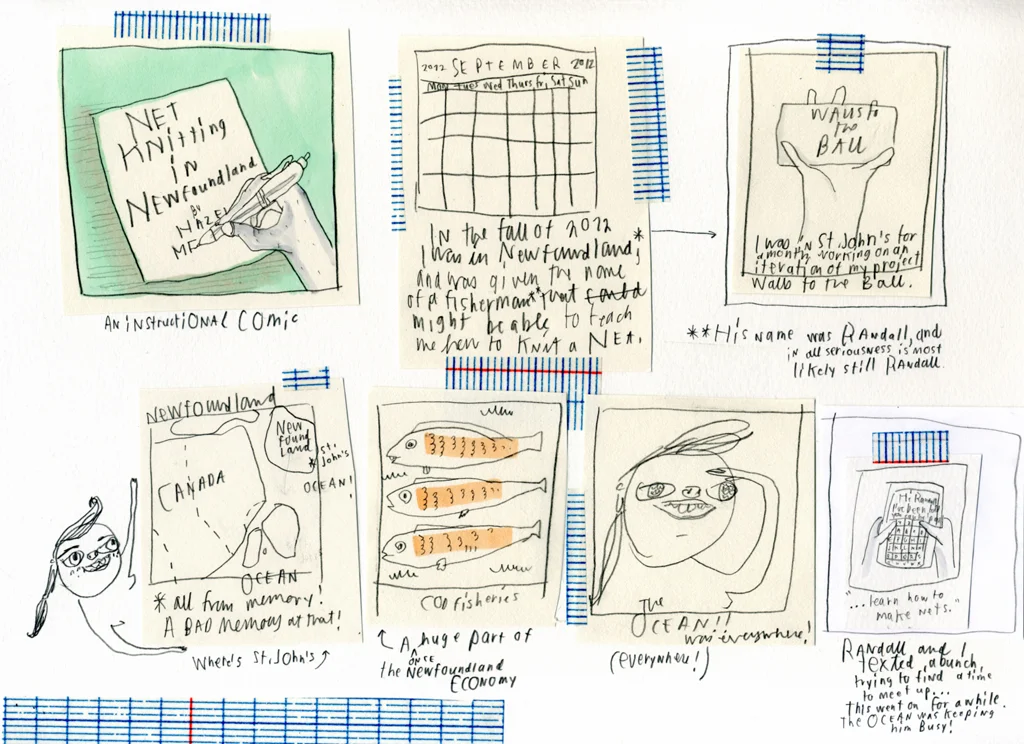 NET
KNitting
iN
Newfoundland
BY
HAZEL
ME
AN iNStRUCtiONAL COMIC
2012 SEPTEMBER 2012
Mon Tues Wed Thurs Fri Sat Sun
IN the fall of 2012
I was in Newfoundland,*
and was given the name
of a fisherman** that could
might be able to teach
me how to KNIT a NET.
WALLS to
the
BALL
I was in St. John's for
a month, working on an
iteration of my project
Walls to the Ball.
**His name was RANdall, and
in all seriousness is most
likely still RANdall.
Newfoundland
CANADA
New
found
land
* St.
John's
OCEAN!
OCEAN
* all from memory!
A BAD Memory at that!
Where's St. John's ↑
COD fisheries
↑ A huge part of
^ ONSE
the Newfoundland
ECONOMY
The
OCEAN!!
was everywhere!
(everywhere!)
Hi Randall
I've been
"...learn how to
make nets."
RANdall and I
texted a bunch,
trying to find a time
to meet up...
this went on for a while.
The OCEAN was keeping
him Busy!